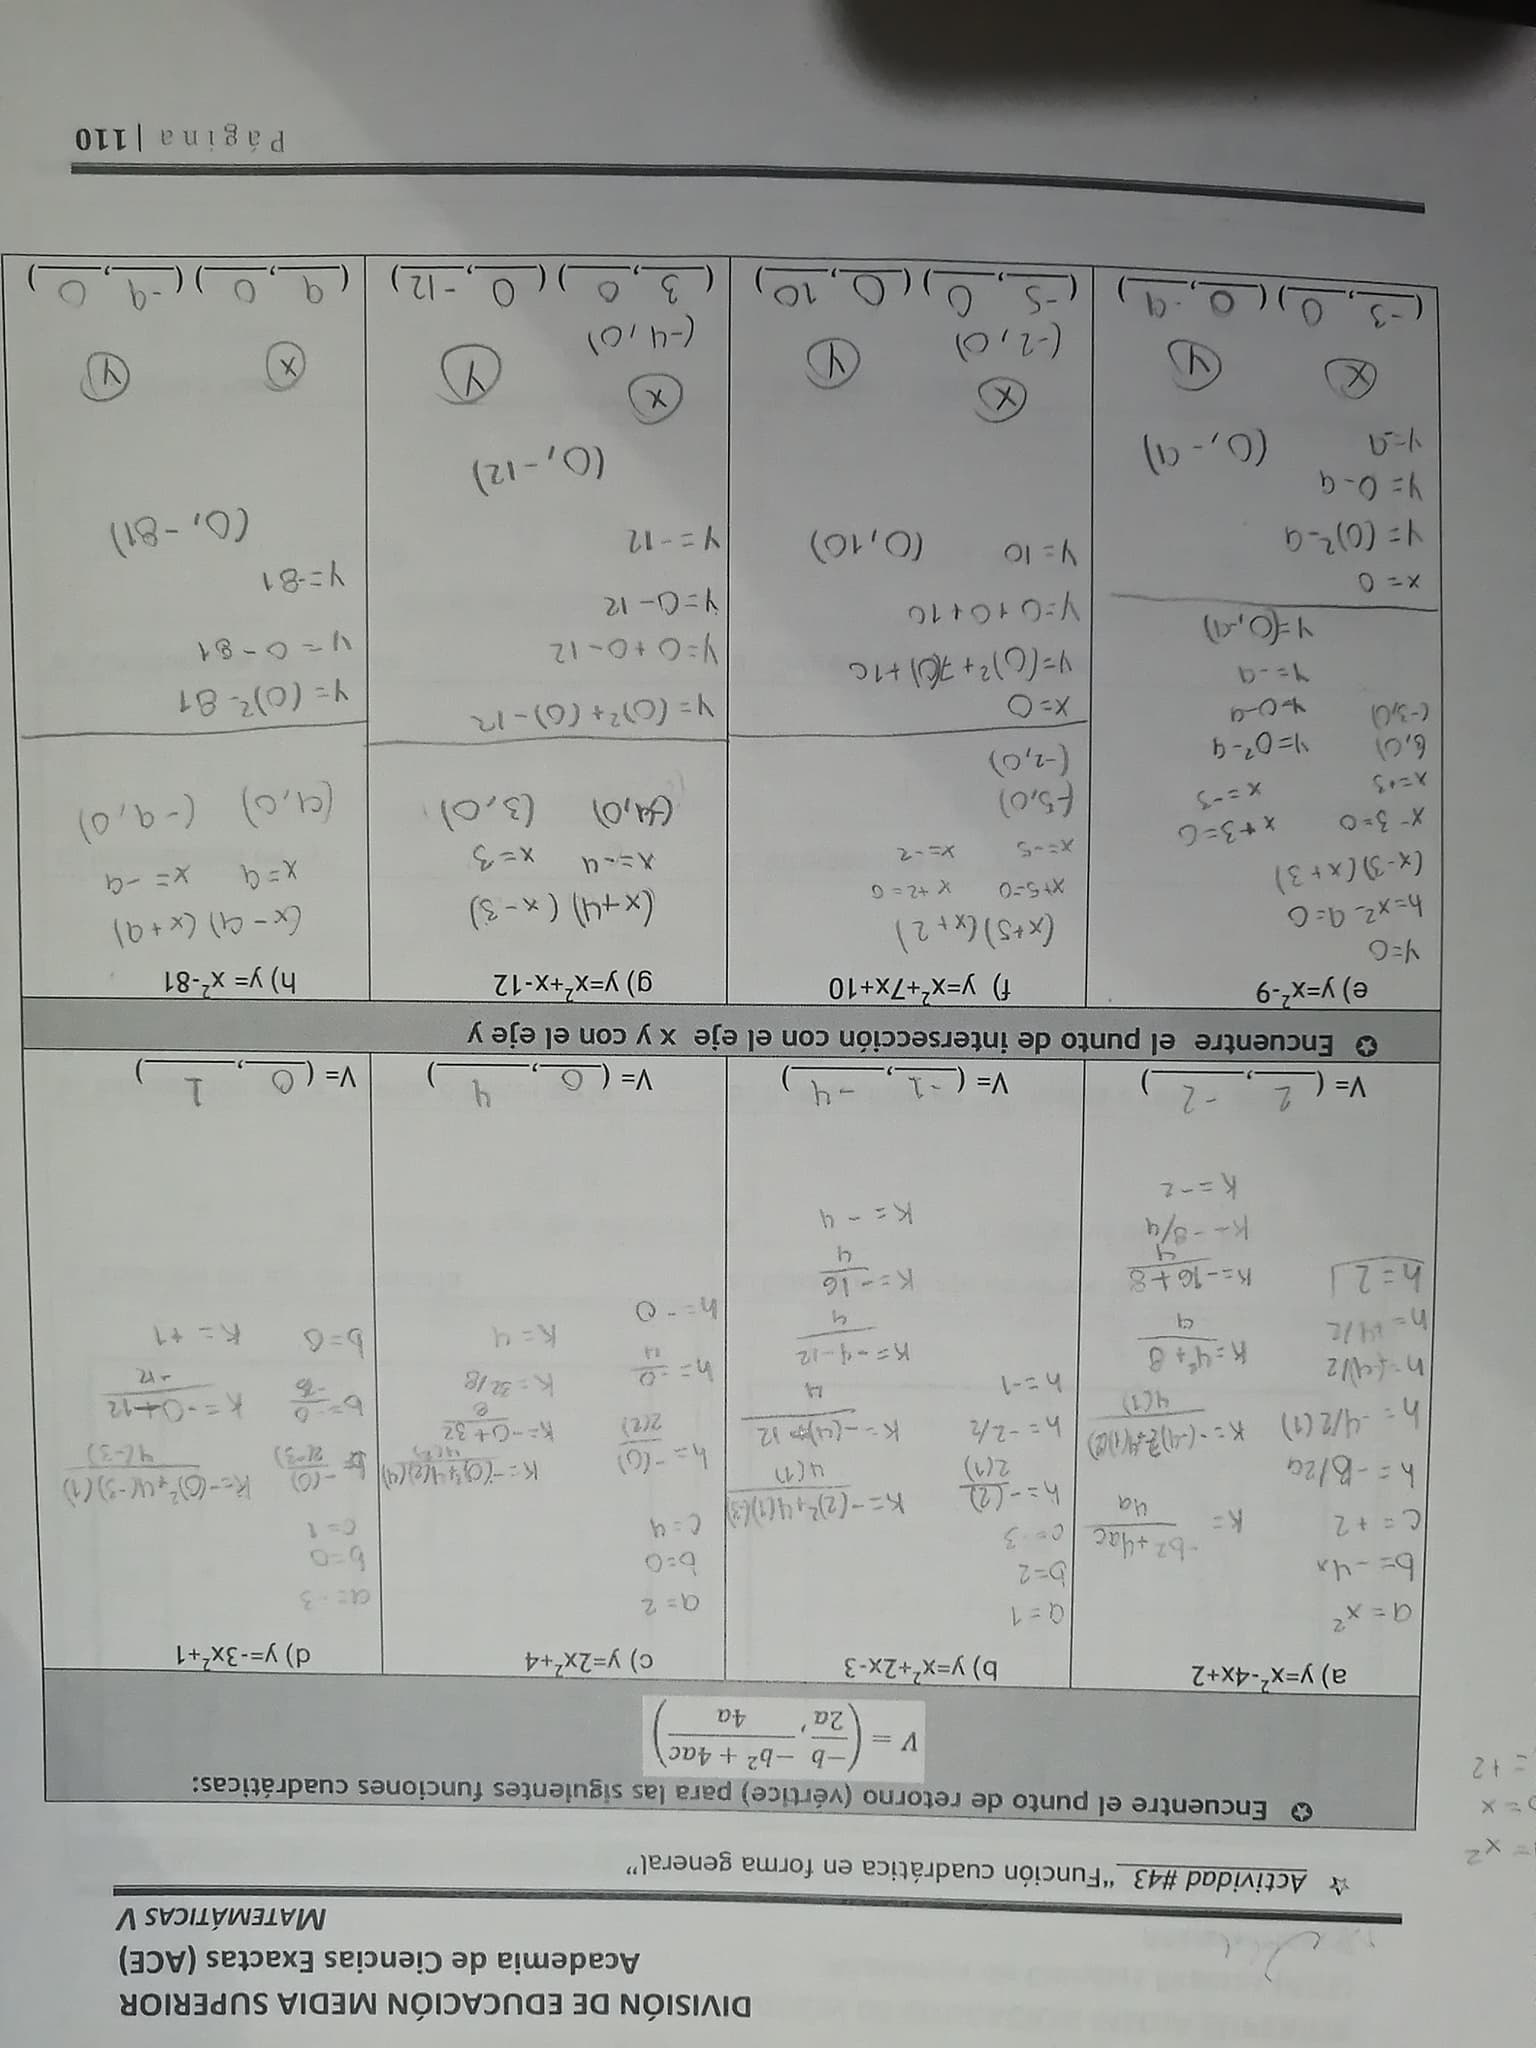 DIVISIÓN DE EDUCACIÓN MEDIA SUPERIOR
Academia de Ciencias Exactas (ACE)
MATEMÁTICAS V
☆ Actividad #43 “Función cuadrática en forma general”
= x²
= x
= +2
✪ Encuentre el punto de retorno (vértice) para las siguientes funciones cuadráticas:
V = (-b/2a, -b² + 4ac/4a)
a) y=x²-4x+2
a = x²
b= -4x
c = +2
h = -B/2a
h = -4/2(1)
h=-(-4)/2
h = +4/2
h = 2
K= -b²+4ac/4a
K= -(-4)²+4(1)(2)/4(1)
K= 4²+8/4
K=-16+8/4
K= -8/4
K=-2
V= (2, -2)
b) y=x²+2x-3
a = 1
b=2
c= -3
h = -(2)/2(1)
h= -2/2
h = -1
K= -(2)²+4(1)(-3)/4(1)
K= -(4)-12/4
K= -4-12/4
K= -16/4
K= -4
V= (-1, -4)
c) y=2x²+4
a= 2
b=0
C=4
h= -(0)/2(2)
h= -0/4
h= -0
K= -(0)²+4(2)(4)/4(2)
K= -0+32/8
K= 32/8
K= 4
V= (0, 4)
d) y=-3x²+1
a= -3
b=0
c= 1
-(0)/2(-3)
b= -0/-6
b=0
K= -(0)²+4(-3)(1)/4(-3)
K= -0+-12/-12
K= +1
V= (0, 1)
✪ Encuentre el punto de intersección con el eje x y con el eje y
e) y=x²-9
y=0
h=x²-9=0
(x-3)(x+3)
x-3=0 x+3=0
x=+3 x=-3
(3,0) y=0²-9
(-3,0) y=0-9
y=-9
y=(0,-9)
x= 0
y= (0)²-9
y= 0-9
y=-9 (0,-9)
x y
(-3, 0) (0, -9)
f) y=x²+7x+10
(x+5)(x+2)
x+5=0 x+2=0
x=-5 x=-2
(-5,0)
(-2,0)
x=0
y=(0)²+7(0)+10
y=0+0+10
y= 10 (0,10)
x
(-2,0) y
(-5, 0) (0, 10)
g) y=x²+x-12
(x+4)(x-3)
x=-4 x=3
(-4,0) (3,0)
y= (0)²+(0)-12
y=0+0-12
y=0-12
y=-12
(0,-12)
x y
(-4,0)
(3, 0) (0, -12)
h) y= x²-81
(x-9)(x+9)
x=9 x=-9
(9,0) (-9,0)
y= (0)²-81
y= 0-81
y=-81
(0,-81)
x y
(9, 0) (-9, 0)
Página | 110